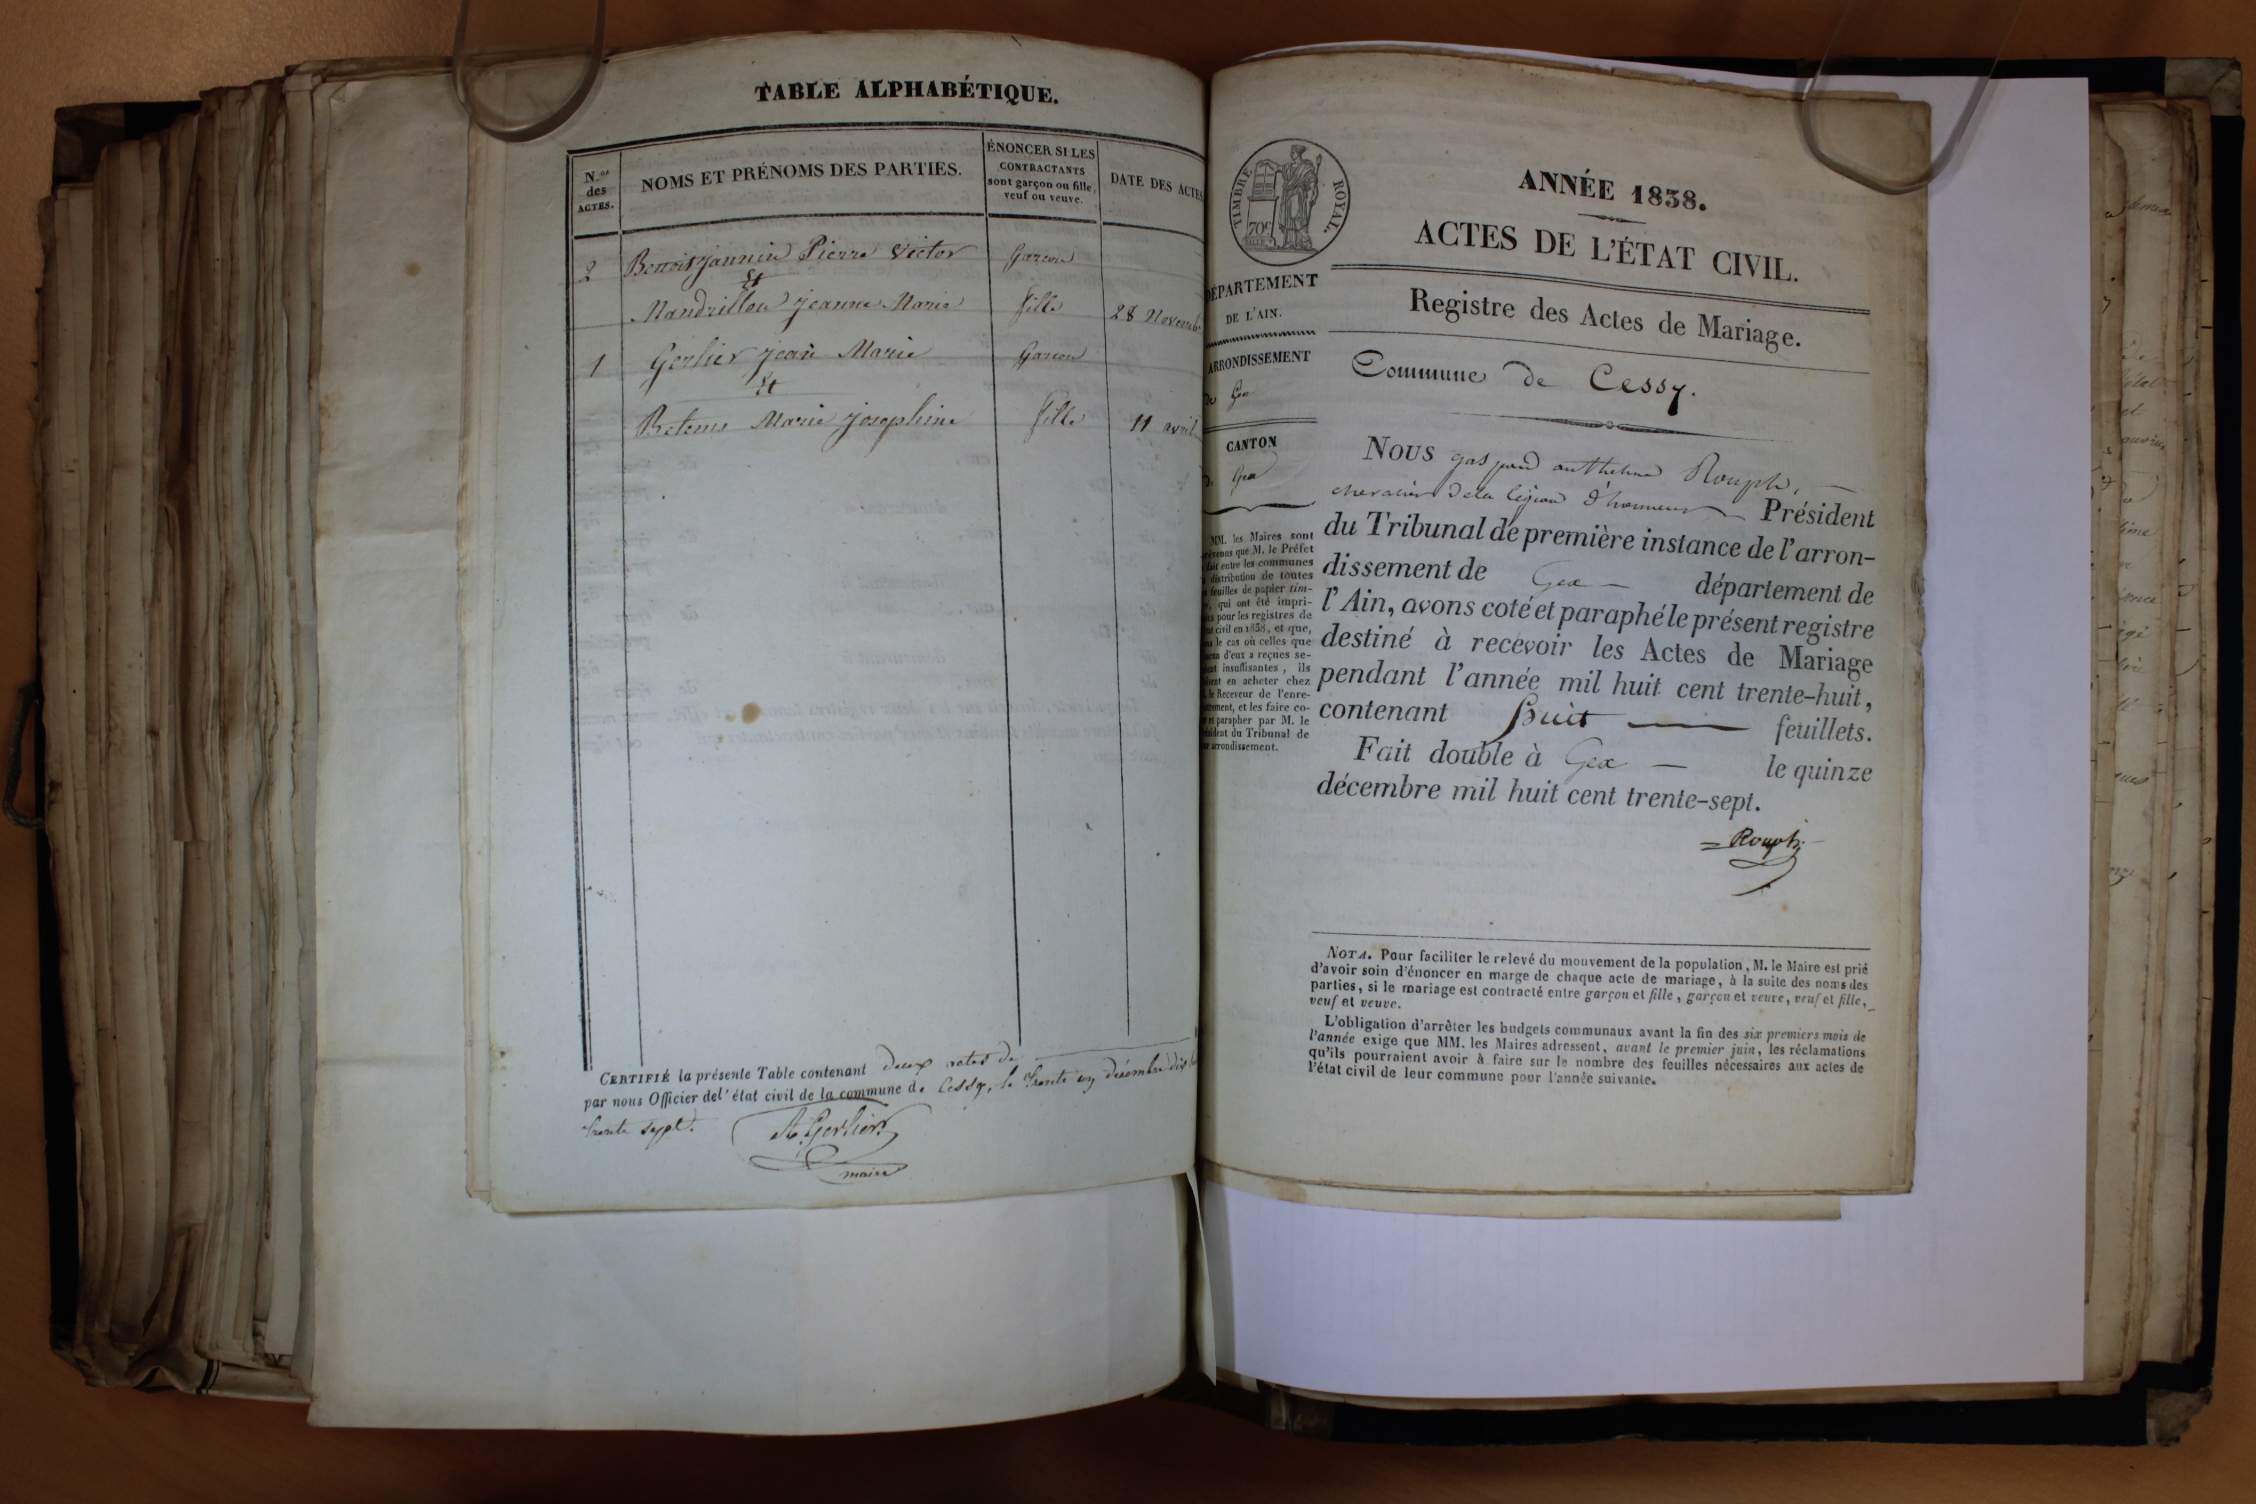 TABLE ALPHABÉTIQUE.
N.os des ACTES.
NOMS ET PRÉNOMS DES PARTIES.
ÉNONCER SI LES CONTRACTANTS sont garçon ou fille, veuf ou veuve.
DATE DES ACTES
2 Benoit jannin Pierre Victor Garcon
Et
Mandrillon jeanne Marie fille 28 Novembre
1 Gerlier jean Marie Garcon
Et
Betems Marie josephine fille 11 avril
CERTIFIÉ la présente Table contenant deux actes de
par nous Officier del'état civil de la commune de Cessy, le trente un décembre dix huit
trente sept.
A. Gerlier
maire
TIMBRE ROYAL.
70c
ANNÉE 1838.
ACTES DE L'ÉTAT CIVIL.
DÉPARTEMENT
DE L'AIN.
ARRONDISSEMENT
de Gex
CANTON
de Gex
Registre des Actes de Mariage.
Commune de Cessy.
NOUS gaspard anthelme Rouph,
chevalier de la légion d'honneur Président
du Tribunal de première instance de l'arron-
dissement de Gex département de
l'Ain, avons coté et paraphé le présent registre
destiné à recevoir les Actes de Mariage
pendant l'année mil huit cent trente-huit,
contenant huit feuillets.
Fait double à Gex le quinze
décembre mil huit cent trente-sept.
Rouph
MM. les Maires sont
prévenus que M. le Préfet
fait entre les communes
distribution de toutes
feuilles de papier tim-
qui ont été impri-
pour les registres de
civil en 1838, et que,
le cas où celles que
d'eux a reçues se-
insuffisantes, ils
en acheter chez
le Receveur de l'enre-
et les faire co-
et parapher par M. le
Président du Tribunal de
arrondissement.
NOTA. Pour faciliter le relevé du mouvement de la population, M. le Maire est prié
d'avoir soin d'énoncer en marge de chaque acte de mariage, à la suite des noms des
parties, si le mariage est contracté entre garçon et fille, garçon et veuve, veuf et fille,
veuf et veuve.
L'obligation d'arrêter les budgets communaux avant la fin des six premiers mois de
l'année exige que MM. les Maires adressent, avant le premier juin, les réclamations
qu'ils pourraient avoir à faire sur le nombre des feuilles nécessaires aux actes de
l'état civil de leur commune pour l'année suivante.